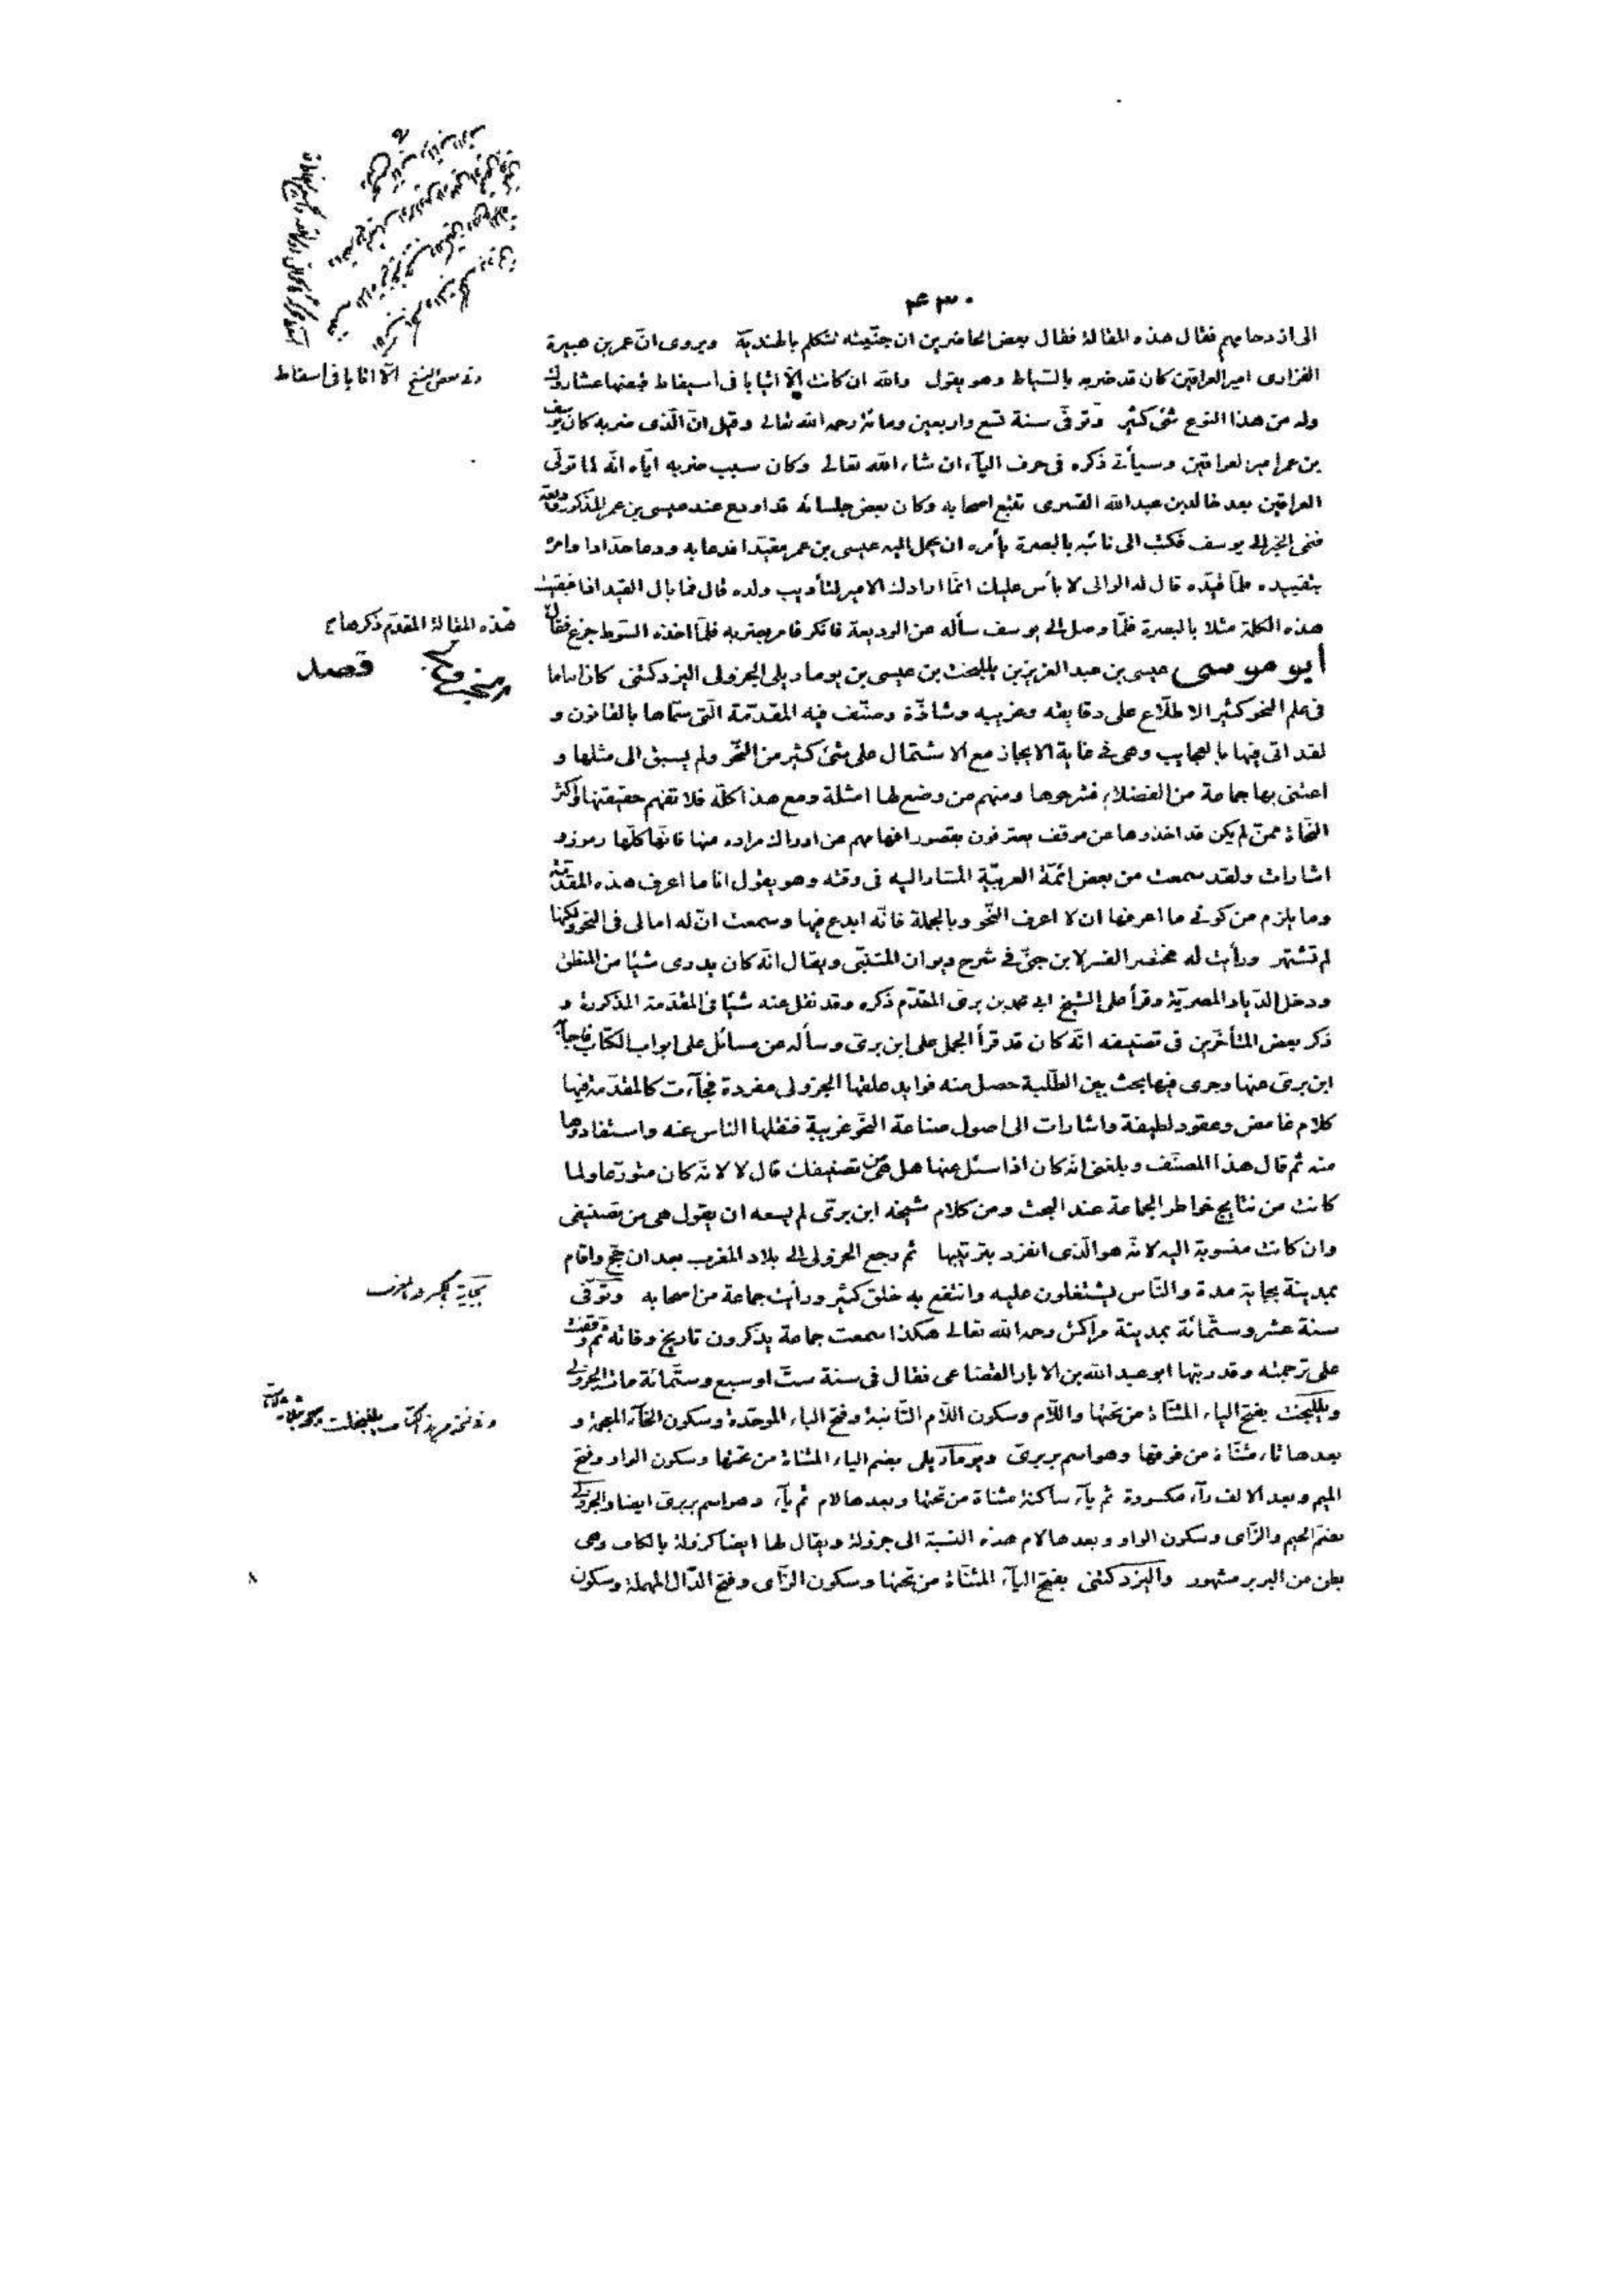 ٤٣٠
الى ازدحامهم فقال هذه المقالة فقال بعض الحاضرين ان جنّيته تتكلم بالهندية ويروى انّ عمر بن هبيرة
الفزارى امير العراقين كان قد ضربه بالسّياط وهو يقول والله ان كانت الّا اثيابا فى اسيفاط قبضها عشاروك
وله من هذا النوع شئ كثير وتوفّى سنة تسع واربعين ومائة رحمه الله تعالى وقيل انّ الّذى ضربه كان يوسف
بن عمر امير العراقين وسيأتى ذكره فى حرف اليآء ان شاء الله تعالى وكان سبب ضربه ايّاه انّه لما تولّى
العراقين بعد خالد بن عبد الله القسرى تتبّع اصحابه وكان بعض جلسائه قد اودع عند عيسى بن عمر المذكور وديعة
فنمى الخبر الى يوسف فكتب الى نائبه بالبصرة يأمره ان يحمل اليه عيسى بن عمر مقيّدا فدعا به ودعا حدّادا وامره
بتقييده فلمّا قيّده قال له الوالى لا بأس عليك انّما ارادك الامير لتأديب ولده قال فما بال القيد اذا فبقيت
هذه الكلمة مثلا بالبصرة فلمّا وصل الى يوسف سأله عن الوديعة فانكر فامر بضربه فلمّا اخذه السّوط جزع فقال
ابو موسى عيسى بن عبد العزيز بن يللبخت بن عيسى بن يوماريلى الجزولى اليزدكتنى كان اماما
فى علم النحو كثير الاطلّاع على دقايقه وغريبه وشاذّه وصنّف فيه المقدّمة الّتى سمّاها بالقانون و
لقد اتى فيها بالعجايب وهى فى غاية الايجاز مع الاشتمال على شئ كثير من النّحو ولم يسبق الى مثلها و
اعتنى بها جماعة من الفضلاء فشرحوها ومنهم من وضع لها امثلة ومع هذا كلّه فلا تفهم حقيقتها واكثر
النّحاة ممّن لم يكن قد اخذوها عن موقف يعترفون بقصور افهامهم عن ادراك مراده منها فانّها كلّها رموز و
اشارات ولقد سمعت من بعض ائمّة العربيّة المشار اليه فى وقته وهو يقول انا ما اعرف هذه المقدّمة
وما يلزم من كونى ما اعرفها ان لا اعرف النّحو وبالجملة فانّه ابدع فيها وسمعت انّ له امالى فى النحو ولكنها
لم تشتهر ورأيت له مختصر الفسر لابن جنّى فى شرح ديوان المتنبّى ويقال انّه كان يدرى شيئا من المنطق
ودخل الدّيار المصريّة وقرأ على الشيخ ابى محمد بن برى المقدّم ذكره وقد نقل عنه شيئا فى المقدّمة المذكورة و
ذكر بعض المتأخّرين فى تصنيفه انّه كان قد قرأ الجمل على ابن برى وسأله عن مسائل على ابواب الكتاب فاجابه
ابن برى عنها وجرى فيها بحث بين الطّلبة حصل منه فوايد علقها الجزولى مفردة فجآءت كالمقدّمة فيها
كلام غامض وعقود لطيفة واشارات الى اصول صناعة النّحو غريبة فنقلها الناس عنه واستفادوها
منه ثم قال هذا المصنّف وبلغنى انّه كان اذا سئل عنها هل هى من تصنيفك قال لا لانّه كان متورّعا ولما
كانت من نتايج خواطر الجماعة عند البحث ومن كلام شيخه ابن برّى لم يسعه ان يقول هى من تصنيفى
وان كانت منسوبة اليه لانّه هو الّذى انفرد بترتيبها ثم رجع الجزولى الى بلاد المغرب بعد ان حجّ واقام
بمدينة بجاية مدة والنّاس يشتغلون عليه وانتفع به خلق كثير ورأيت جماعة من اصحابه وتوفّى
سنة عشر وستّمائة بمدينة مراكش رحمه الله تعالى هكذا سمعت جماعة يذكرون تاريخ وفاته ثم وقفت
على ترجمته وقد رتبها ابو عبد الله بن الابار القضاعى فقال فى سنة ستّ او سبع وستّمائة مات الجزولى
ويللبخت بفتح الياء المثنّاة من تحتها واللّام وسكون اللّام الثّانية وفتح الباء الموحّدة وسكون الخآء المعجمة و
بعدها تاء مثنّاة من فوقها وهو اسم بربرىّ ويوماريلى بضم الياء المثناة من تحتها وسكون الواو وفتح
الميم وبعد الالف رآء مكسورة ثم يآء ساكنة مثناة من تحتها وبعدها لام ثم يآء وهو اسم بربرى ايضا والجزولى
بضمّ الجيم والزّاى وسكون الواو وبعدها لام هذه النّسبة الى جزولة ويقال لها ايضا كزولة بالكاف وهى
بطن من البربر مشهور واليزدكتنى بفتح اليآء المثنّاة من تحتها وسكون الزّاى وفتح الدّال المهملة وسكون
وفى بعض النسخ الّا اثيابا فى اسفاط
هذه المقالة المقدّم ذكرها م
قصد
بجاية